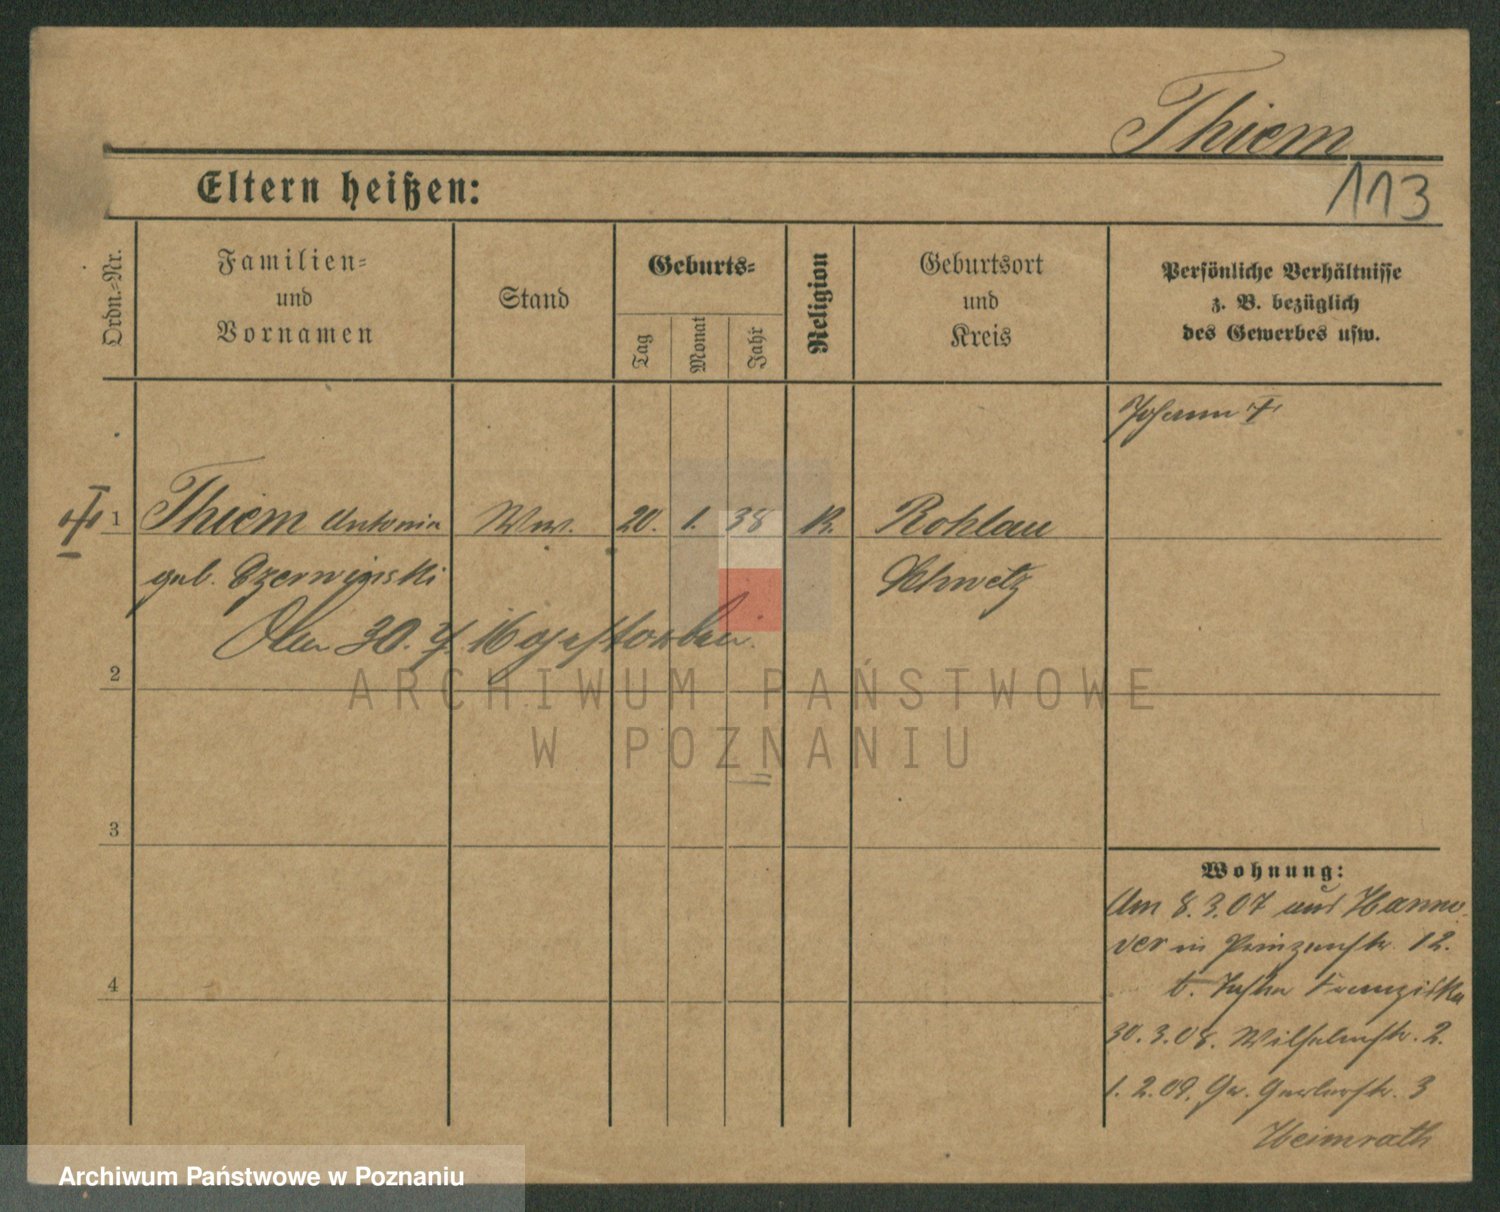 Thiem
Eltern heißen:
113
Ordn.-Nr.
Familien-
und
Vornamen
Stand
Geburts-
Tag
Monat
Jahr
Religion
Geburtsort
und
Kreis
Persönliche Verhältnisse
z. B. bezüglich
des Gewerbes usw.
Johann †
1 Thiem Antonia Ww. 20. 1. 38 K. Rohlau
geb. Czerwinski Schwetz
Am 30. 4. 16 gestorben.
2
ARCHIWUM PAŃSTWOWE
W POZNANIU
3
Wohnung:
Am 8.3.07 aus Hanno-
ver in Prinzenstr. 12.
b. Tochter Franziska
4
30.3.08. Wilhelmstr. 2.
1.2.09. Gr. Gerberstr. 3
Heimrath
Archiwum Państwowe w Poznaniu